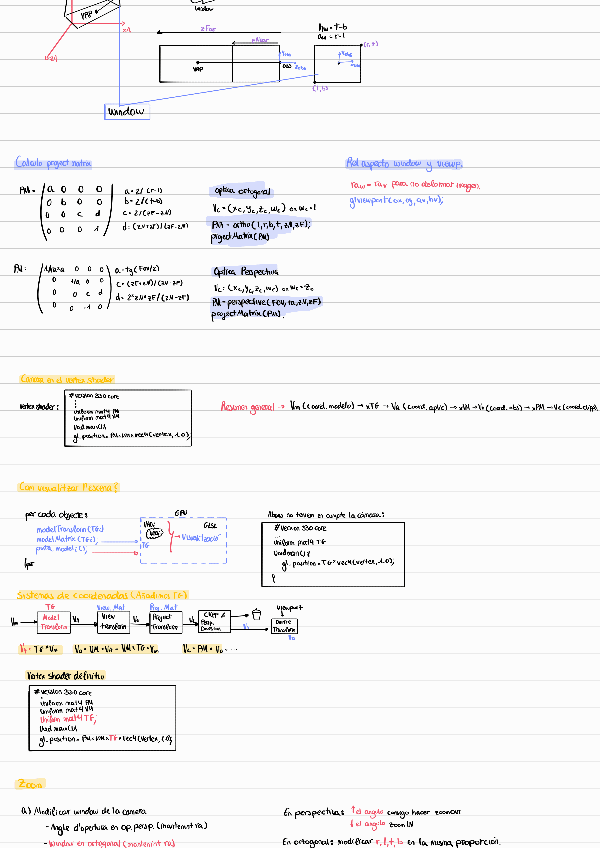 VRP
window
zFar
zNear
hw = t-b
aw = r-l
(r,t)
VRP
OBS
(l,b)
window
Calculo project matrix
Rel aspecto window y viewp.
PM = a 0 0 0
0 b 0 0
0 0 c d
0 0 0 1
a = 2/(r-l)
b = 2/(t-b)
c = 2/(zF-zN)
d = (zN+zF)/(zF-zN)
optica ortogonal
Vc = (xc, yc, zc, wc) on wc = 1
PM = ortho(l,r,b,t,zN,zF);
projectMatrix(PM)
raw = rav para no deformar imagen.
glViewport(ox, oy, av, hv);
PM = 1/a·ra 0 0 0
0 1/a 0 0
0 0 c d
0 0 -1 0
a = tg(FOV/2)
c = (zF+zN)/(zN-zF)
d = 2*zN*zF/(zN-zF)
Optica Perspectiva
Vc = (xc, yc, zc, wc) on wc = zo
PM = perspective(FOV, ra, zN, zF)
projectMatrix(PM).
Camara en el vertex shader
vertex shader:
# version 330 core
uniform mat4 PM
uniform mat4 VM
void main(){
gl_position = PM*VM*vec4(vertex, 1.0)
Resumen general → Vm (coord. modelo) → xTG → Va (coord. aplic) → xVM → Vo (coord. obs) → xPM → Vc (coord. clipp)
Com visualitzar l'escena?
per cada objecte:
modelTransform(TGi)
modelMatrix(TGi);
pinta_model_i();
fper
GPU
VAOi
TG
GLSL
→ Visualització
Ahora no tienen en cuenta la cámara:
# version 330 core
uniform mat4 TG
void main(){
gl_position = TG*vec4(vertex, 1.0);
}
Sistemas de coordenadas (Añadimos TG)
TG
View Mat
Proj. Mat
viewport
Vm
Model Transform
Va
View transform
Vo
Project Transform
Vc
CLIP & Persp. Division
Device Transform
VD
Va = TG*Vm
Vo = VM*Va = VM*TG*Vm
Vc = PM*Vo ...
Vertex shader definitivo
# version 330 core
uniform mat4 PM
uniform mat4 VM
uniform mat4 TG;
void main(){
gl_position = PM*VM*TG*vec4(vertex, 1.0);
Zoom
a) Modificar window de la camera
- Angle d'obertura en op. persp. (mantenint ra)
- Window en ortogonal (mantenint ra)
En perspectiva: ↑ el angulo consigo hacer zoom out
↓ el angulo zoom IN
En ortogonal: modificar r, l, t, b en la misma proporción.